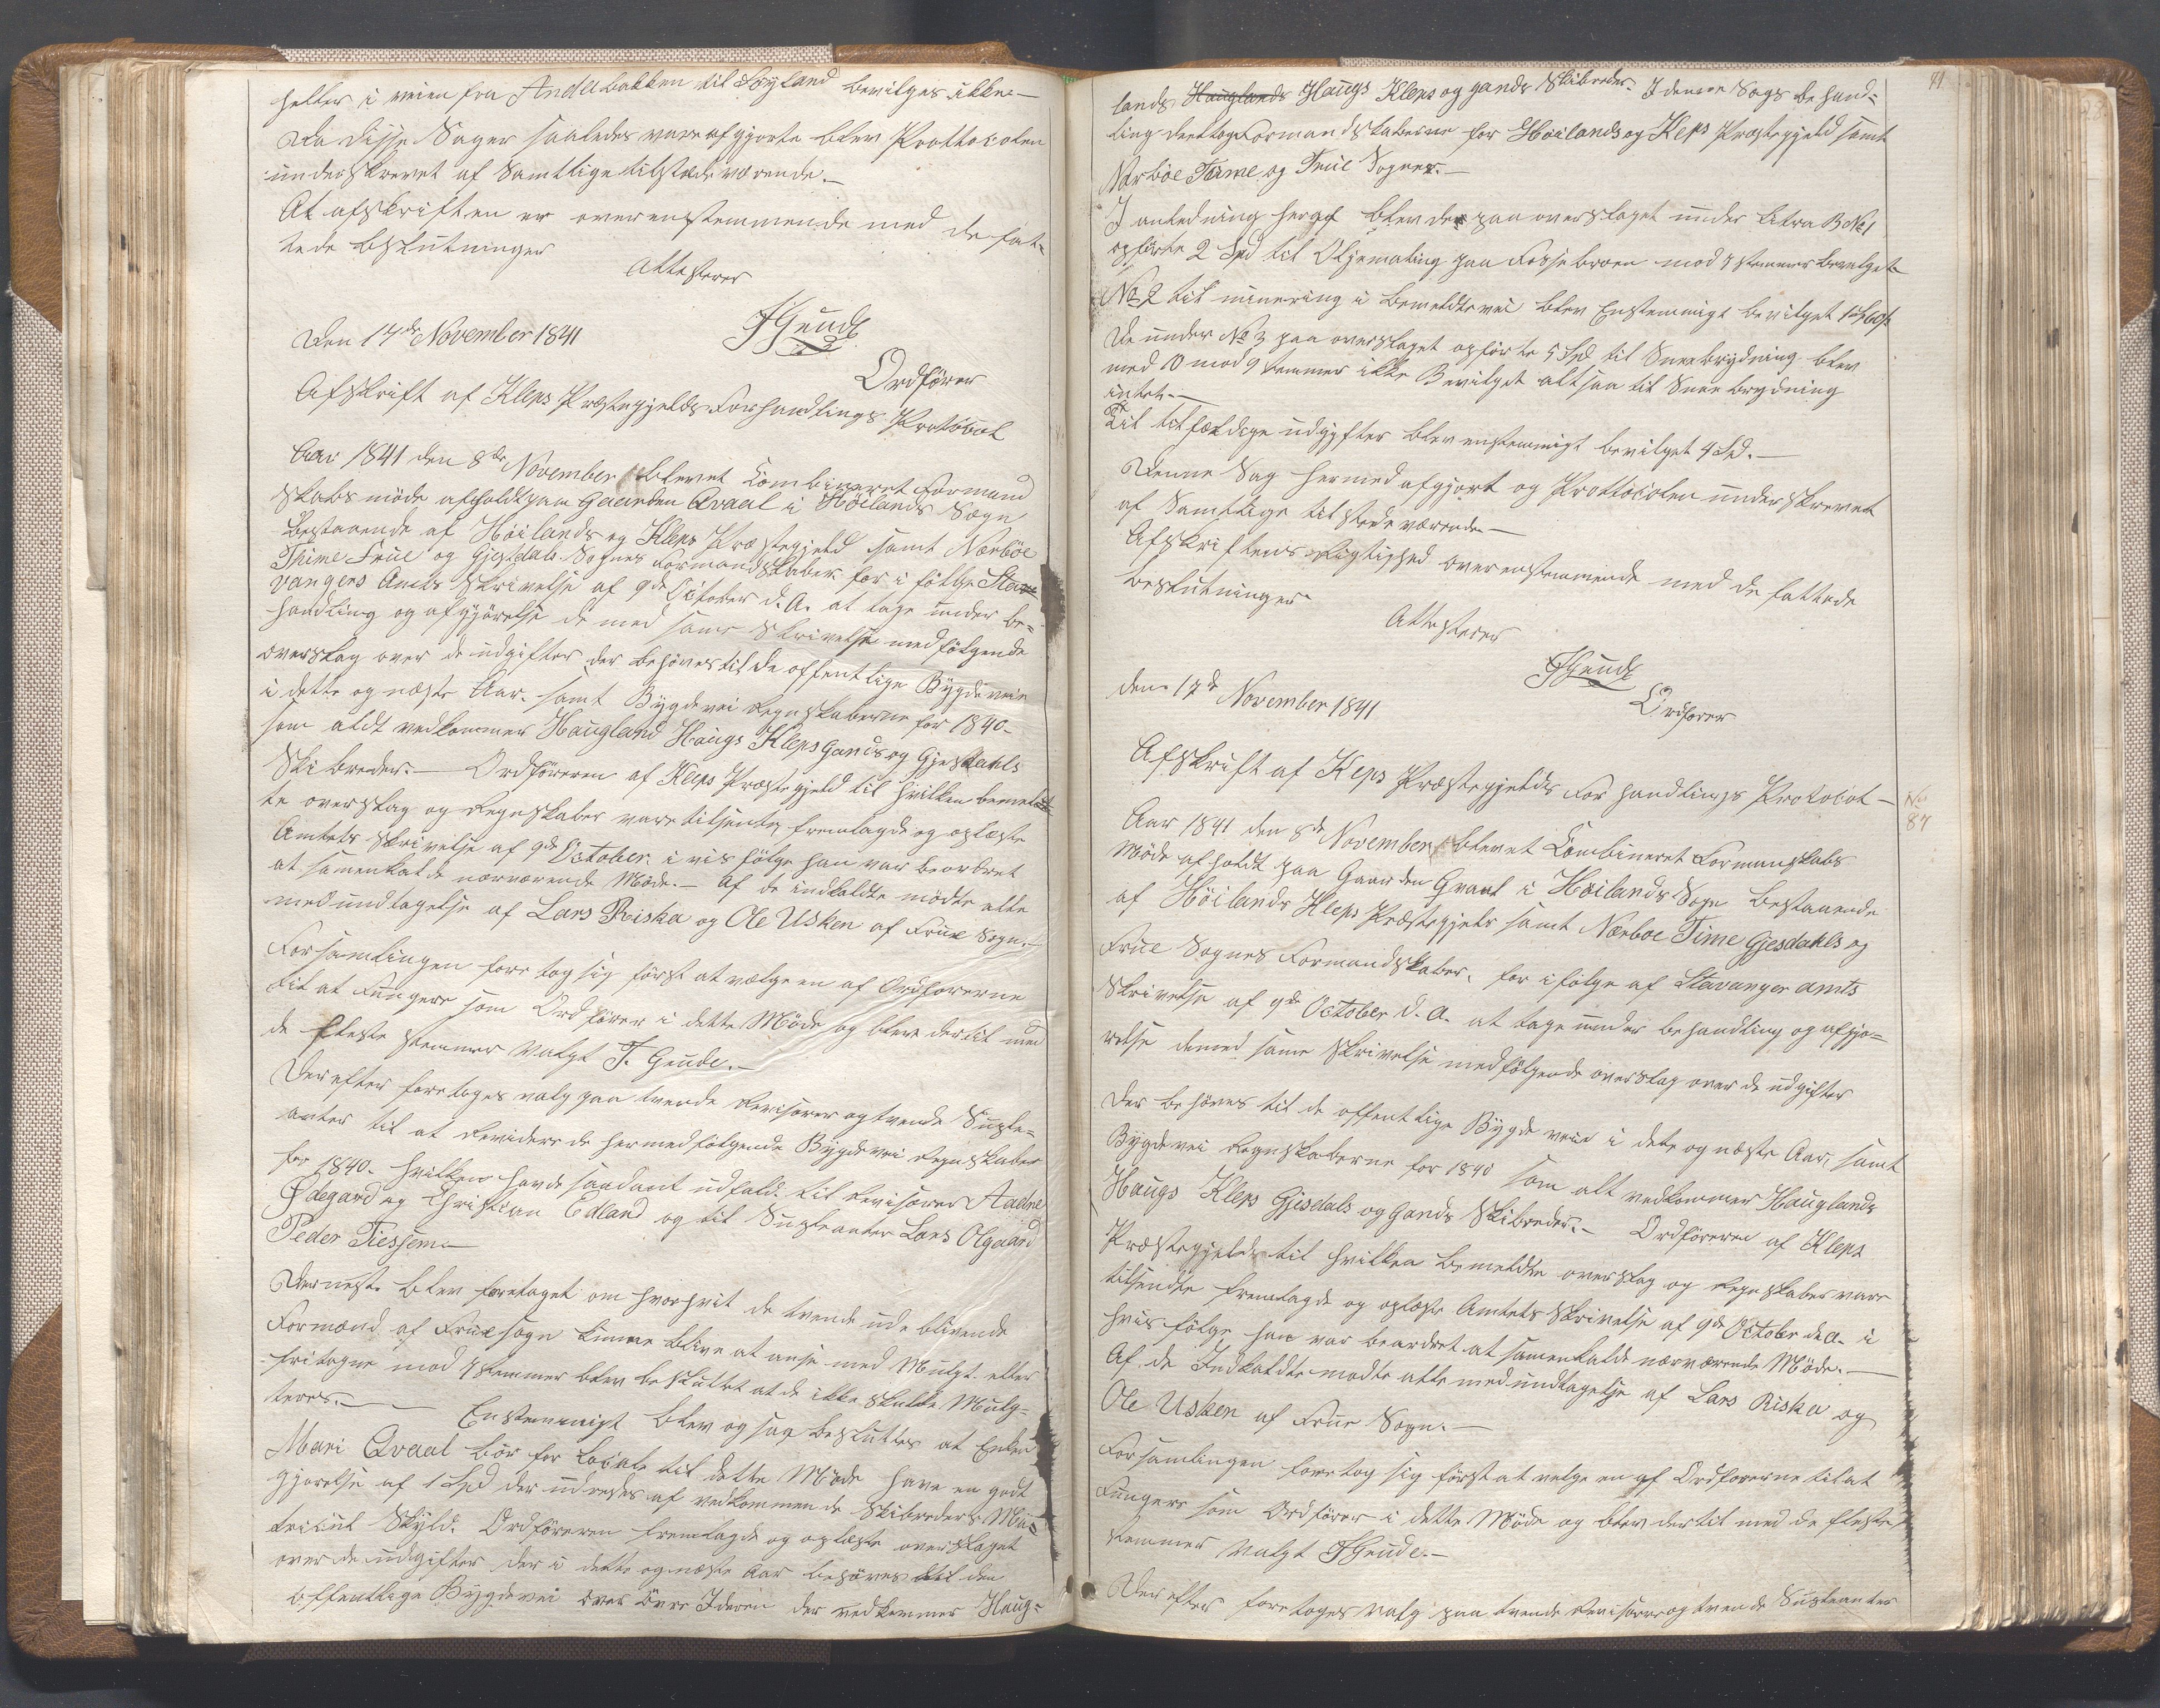 heller i veien fra Andabakken til Foyland bevilges ikke.—
Da disse Sager saaledes vare afgjorte blev Protthocolen
underskrevet af Samtlige tilstedeværende.—
At afskriften er overensstemmende med de fat-
tede Beslutninger
Attesterer
Den 17de November 1841
Ordfører
Afskrift af Kleps Præstegjelds Forhandlings Protocol
Aar 1841 den 8de November blev et Combineret Formand
skabsmøde afholdt paa Gaarden Qvaal i Höilands Sogn
bestaaende af Höilands og Kleps Præstegjeld samt Nærböe
Thime Frue og Gjesdals Sognes Formandskaber for i følge Stav
vangers Amts Skrivelse af 9de October d. A. at tage under be-
handling og afgjørelse de med samme skrivelse medfølgende
overslag over de udgifter der behøves til de offentlige Bygdeveie
i dette og næste Aar. samt Bygdevei Regnskaberne for 1840.
som aldt vedkommer Haugland Haugs Kleps Gands og Gjesdahls
Skibreder.— Ordføreren af Kleps Præstegjeld til hvilken bemeld
te overslag og Regnskaber vare tilsendte, fremlagde og oplæste
Amtets Skrivelse af 9de October. i vis følge han var beordret
at samenkalde nærværende Møde.— Af de indkaldte mødte alle
med undtagelse af Lars Riska og Ole Usken af Frue Sogn.—
Forsamlingen fore tog sig først at vælge en af Ordførerne
til at Fungere som Ordfører i dette Møde og blev dertil med
de fleste stemmer valgt T. Gende.—
Derefter foretoges valg paa tvende Revisorer og tvende Suple-
anter til at Revidere de hermed følgende Bygdevei Regnskaber
for 1840. hvilken havde saadant udfald. til Revisorer Aadne
Ødegard og Christian Edland og til Supleanter Lars Olgaard
Peder Tiessem—
Dernest blev foretaget om hvorhvit de tvende udeblivende
Formænd af Frue sogn kunne blive at anse med Mulgt eller
fritagne mod 7 stemmer blev besluttet at de ikke skulde Mulg-
teres.— Enstemmigt blev ogsaa besluttet at Enken
Mari Qvaal bör for Locale til dette Møde have en godt
gjørelse af 1 Spd der udredes af vedkommende Skibreders Ma-
tricul Skyld. Ordføreren fremlagde og oplæste overslaget
over de udgifter der i dette og næste Aar behøves til den
offentlige Bygdevei over Övre Jederen der vedkommer Haug-
91
lands Hauglands Haugs Kleps og gands Skibreder. I denne Sags behand-
ling deeltoge Formandskaberne for Höilands og Kleps Præstegjeld samt
Nærböe Time og Frue Sogner.—
I anledning heraf blev de paa overslaget under Litra B No 1
opførte 2 Spd til Oljemaling paa Fossebroen mod 7 stemmer bevilget
No 2 til minering i bemeldte vei blev Enstemmigt bevilget
De under No 3 paa overslaget opførte 5 Spd til Sneebrydning blev
med 10 mod 9 stemmer ikke Bevilget altsaa til Snee brydning
intet.—
Til tilfældige udgifter blev enstemmigt bevilget 4 Spd.—
Denne Sag hermed afgjort og Prottocolen underskrevet
af Samtlige tilstedeværende—
Afskriftens Rigtighed overensstemmende med de fattede
beslutninger
Attesterer
den 17de November 1841
Ordfører
Afskrift af Kleps Præstegjelds Forhandlings Protocol—
No
87
Aar 1841 den 8de November blev et Combineret Formanskabs
Møde afholdt paa Gaarden Qvaal i Höilands Sogn bestaaende
af Höilands Kleps Præstegjeld samt Nærboe Time Gjesdahls og
Frue Sognes Formandskaber. for i følge af Stavanger amts
Skrivelse af 9de October d. A. at tage under behandling og afgjø-
relse de med samme skrivelse medfølgende overslag over de udgifter
der behøves til de offentlige Bygdeveie i dette og næste Aar, samt
Bygdevei Regnskaberne for 1840 som alt vedkommer Hauglands
Haugs Kleps Gjesdals og Gands Skibreder.— Ordføreren af Kleps
Præstegjeld til hvilken bemeldte overslag og Regnskaber vare
tilsendte fremlagde og oplæste Amtets Skrivelse af 9de October d. A. i
hvis følge han var beordret at samenkalde nærværende Møde.—
Af de Indkaldte mødte alle med undtagelse af Lars Riska og
Ole Usken af Frue Sogn.—
Forsamlingen foretog sig først at velge en af Ordførerne til at
Fungere som Ordfører i dette Møde og blev dertil med de fleste
stemmer valgt T Gende.—
Derefter foretoges valg paa tvende Revisorer og tvende Supleanter